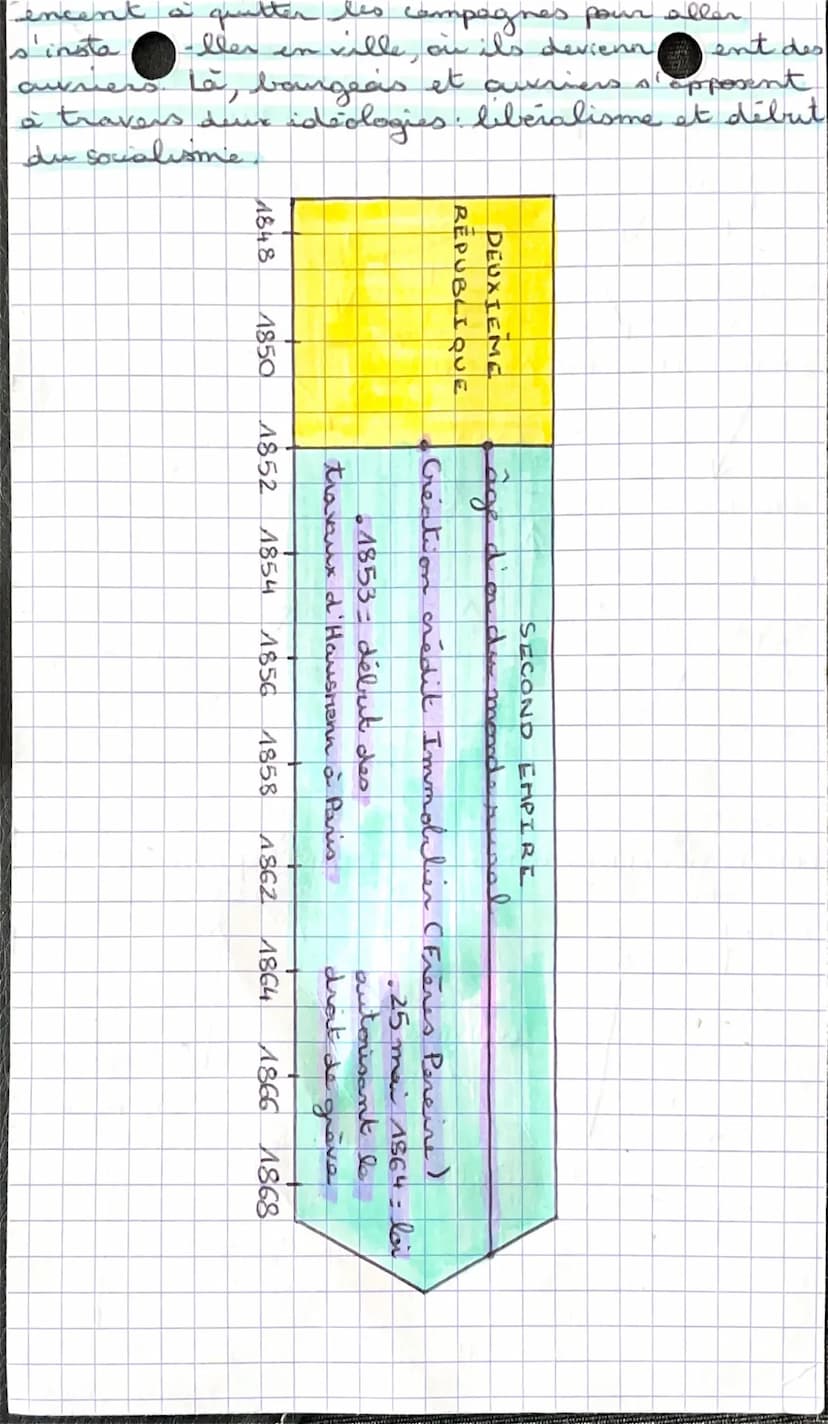 encent à quitter les campagnes pour aller
s'insta -ller en ville, où ils devienn ent des
ouvriers. Là, bourgeois et ouvriers s'opposent
à travers deux idéologies : libéralisme et début
du socialisme.
DEUXIÈME
RÉPUBLIQUE
SECOND EMPIRE
âge d'or du monde rural
Création crédit Immobilier (Frères Pereire)
.1853 = début des
travaux d'Hausmann à Paris
.25 mai 1864 = loi
autorisant le
droit de grève
1848 1850 1852 1854 1856 1858 1862 1864 1866 1868